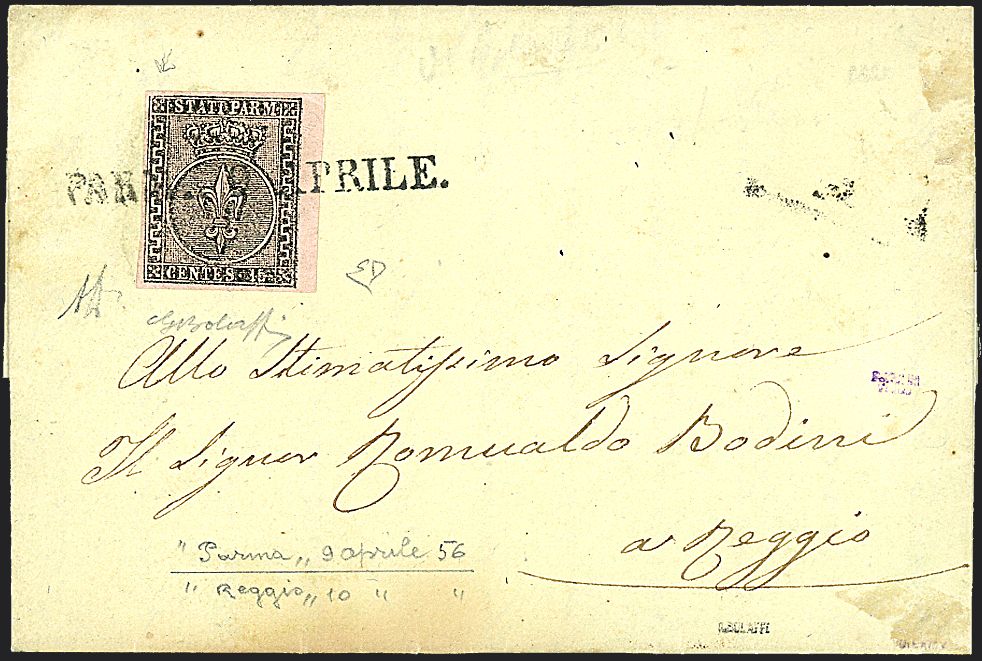 STATI PARM:
APRILE.
CENTES. 15
Allo Stimatissimo Signore
Il Signor Romualdo Bodini
a Reggio
" Parma „ 9 aprile 56
" Reggio „ 10 " "
A.BOLAFFI